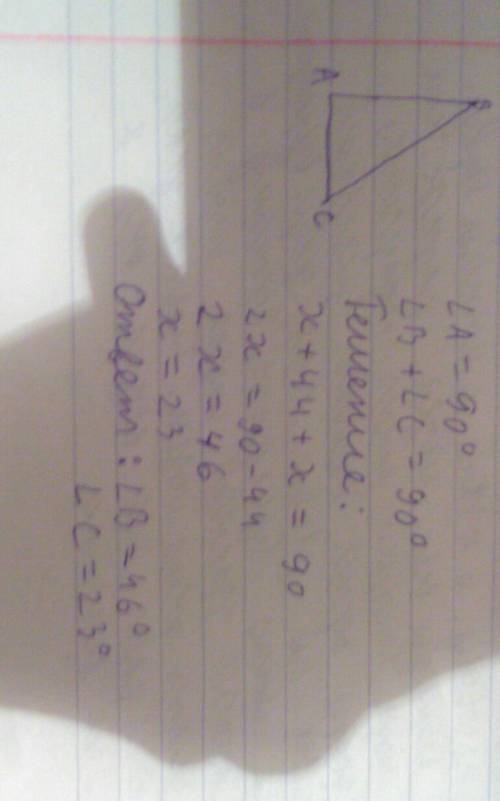 A
B
C
∠A = 90°
∠B + ∠C = 90°
Решение:
x + 44 + x = 90
2x = 90 - 44
2x = 46
x = 23
Ответ: ∠B = 46°
∠C = 23°